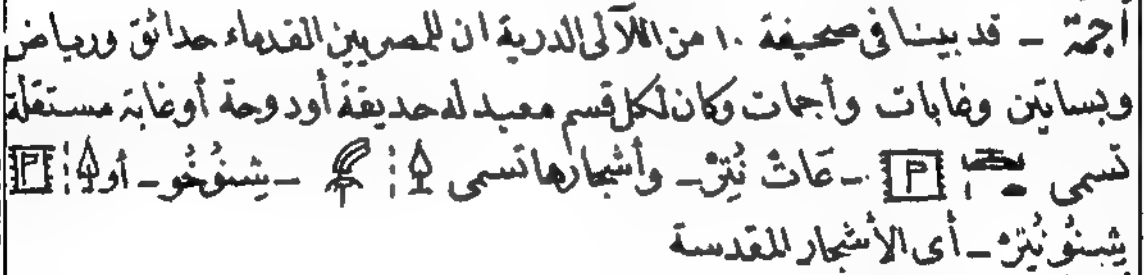 أجمة ـ قد بينا فى صحيفة ١٠ من اللآلى الدرية ان للمصريين القدماء حدائق ورياض
وبساتين وغابات وأجمات وكان لكل قسم معبد له حديقة أو دوحة أو غابة مستقلة
تسمى ـ عَاتْ نُتِرْ ـ وأشجارها تسمى ـ يشنُوخُو ـ أو
يشنُو نُيتِرْ ـ أى الأشجار المقدسة